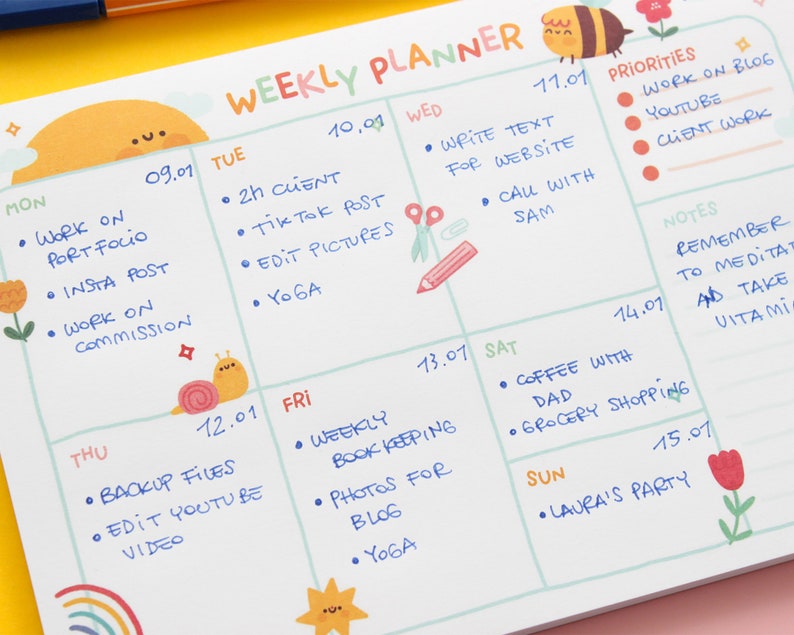 WEEKLY PLANNER
MON
09.01
• WORK ON
PORTFOLIO
• INSTA POST
• WORK ON
COMMISSION
TUE
10.01
• 2h CLiENT
• TikTOK POST
• EDIT PICTURES
• YOGA
WED
11.01
• WRITE TEXT
FOR WEBSITE
• CALL WITH
SAM
PRiORiTiES
WORK ON BLOG
YOUTUBE
CLIENT WORK
NOTES
REMEMBER
TO MEDITAT
AND TAKE
VITAMI
THU
12.01
• BACKUP FILES
• EDIT YOUTUBE
VIDEO
FRi
13.01
• WEEKLY
BOOKKEEPING
• PHOTOS FOR
BLOG
• YOGA
SAT
14.01
• COFFEE WITH
DAD
• GROCERY SHOPPING
SUN
15.01
• LAURA'S PARTY